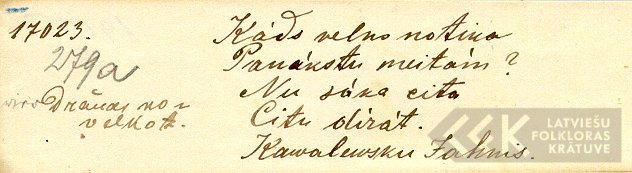 17023.
279a
Drānas no=
velkot.
Kāds velns notika
Panākstu meitām?
Nu sāka cita
Citu dīrāt.
Kawalewsku Jahnis.
LATVIEŠU
FOLKLORAS
KRĀTUVE